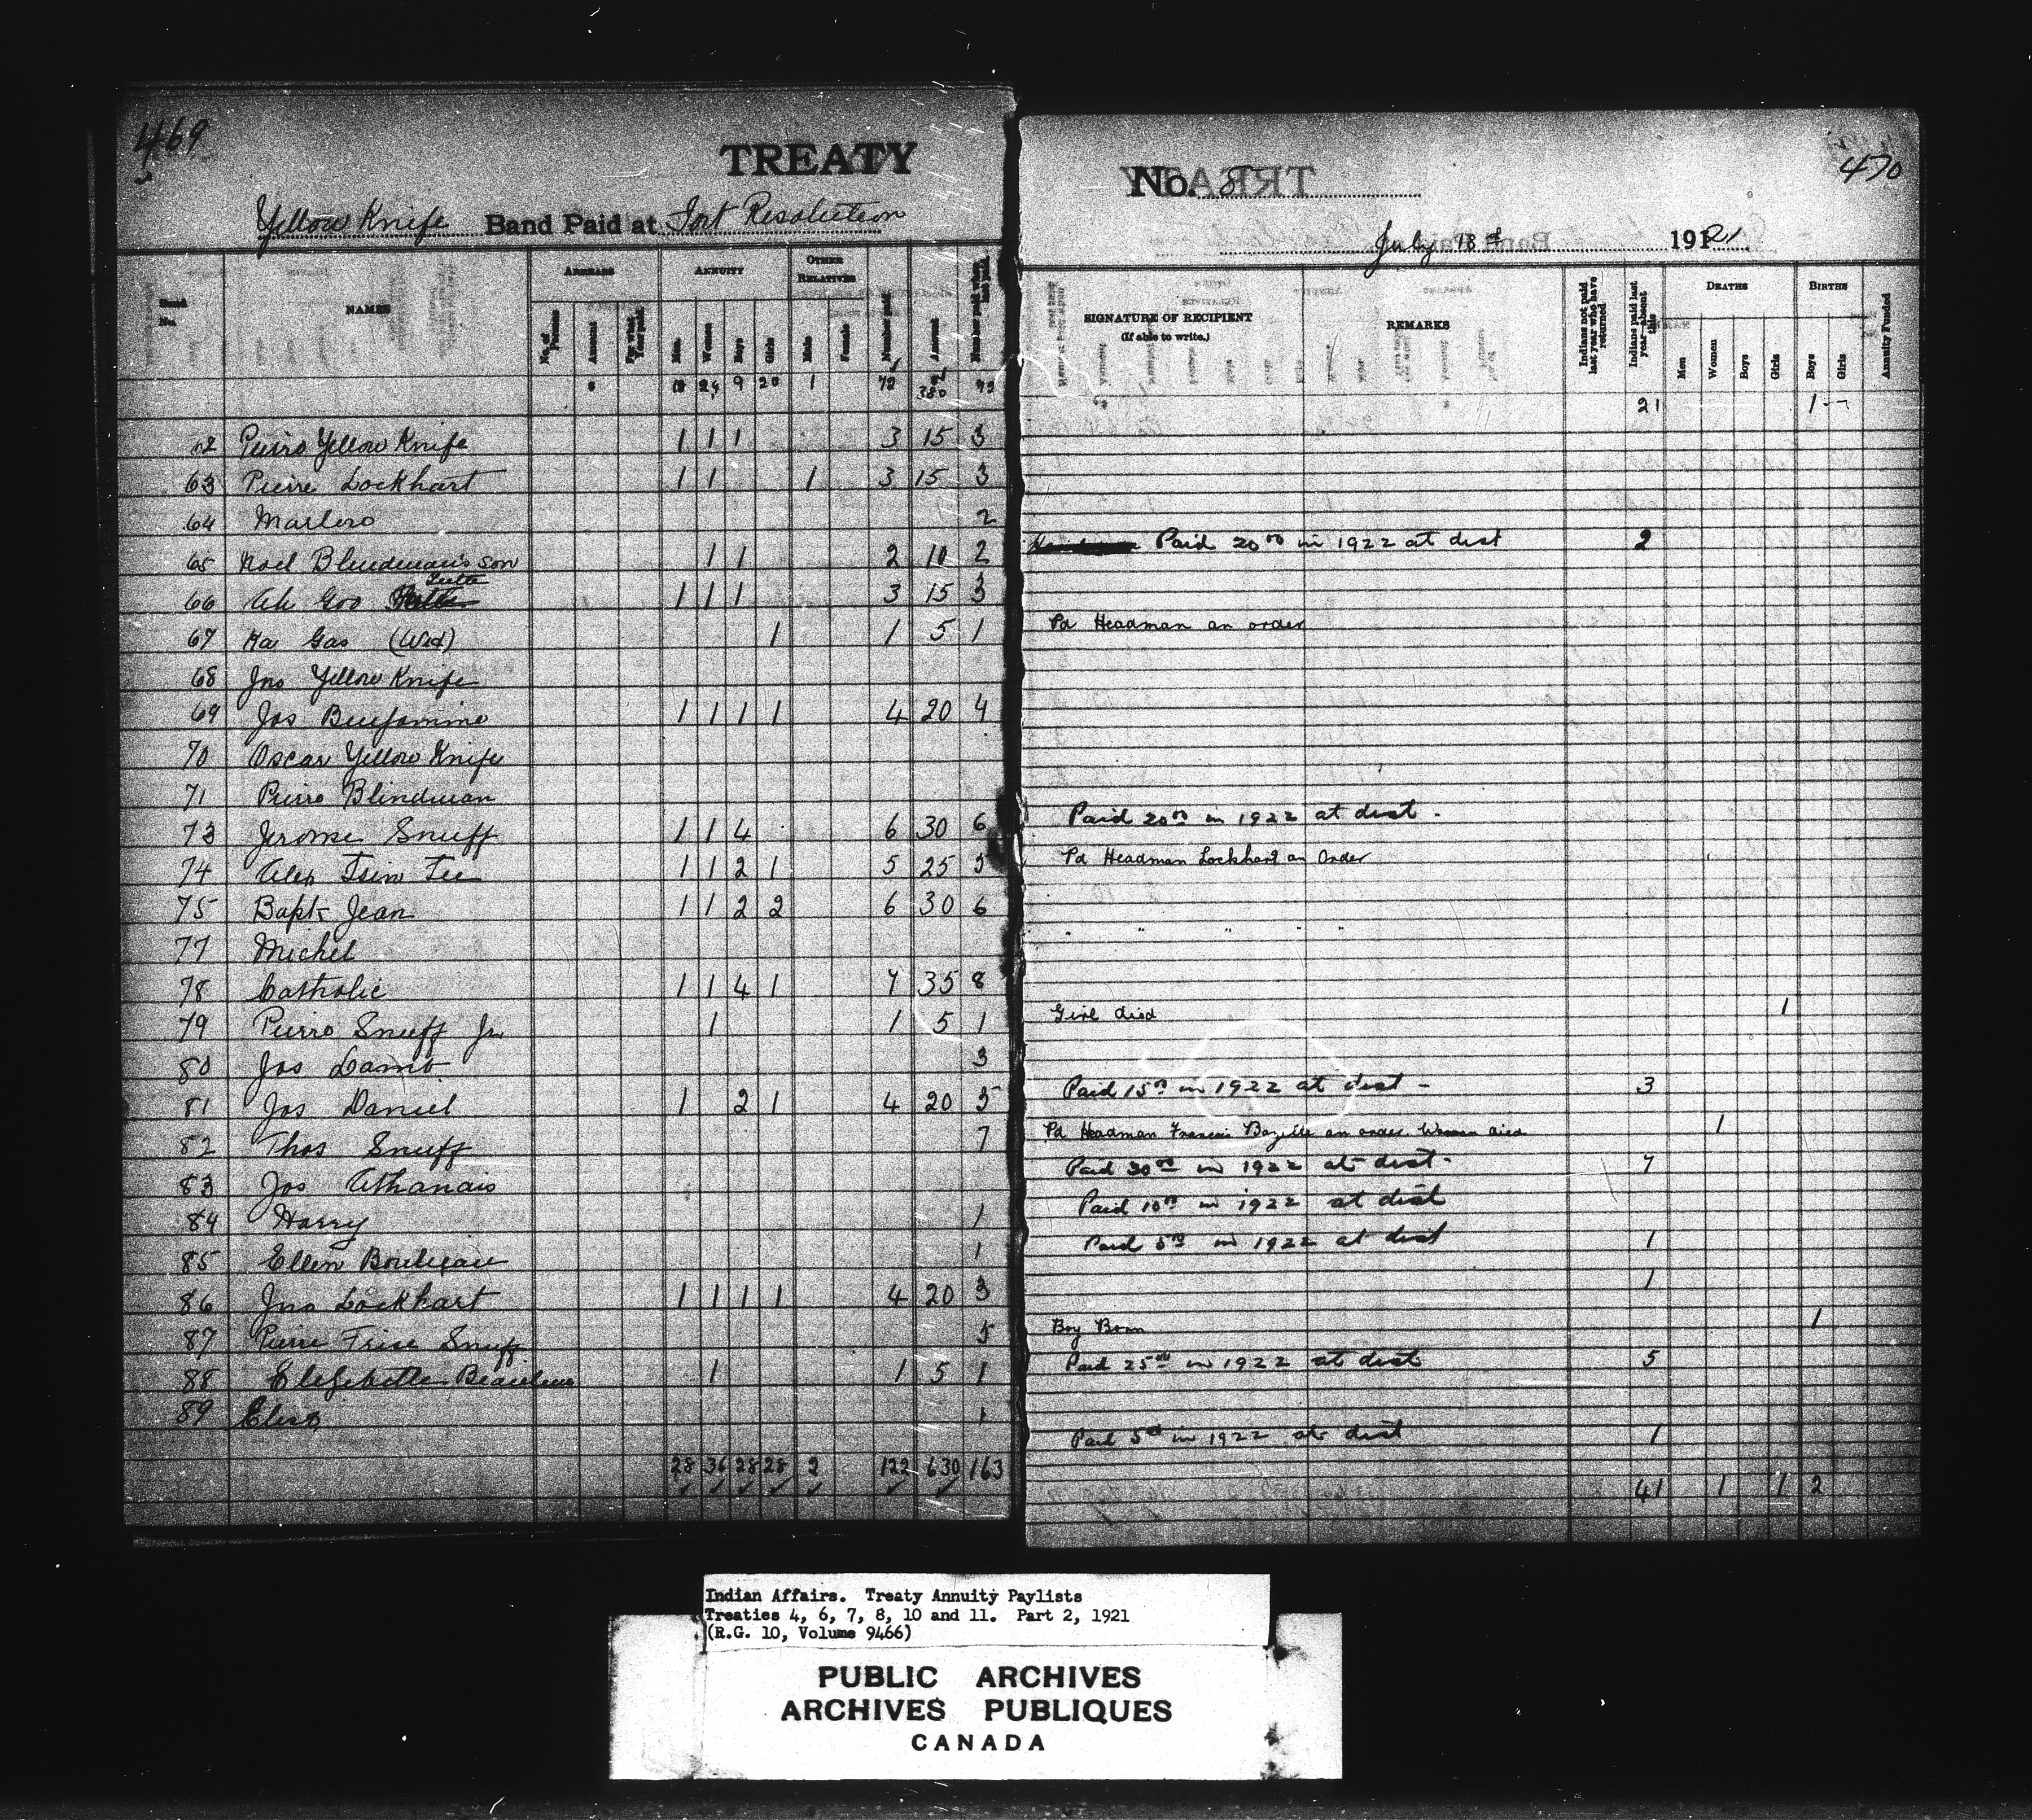 469
TREATY
Yellow Knife Band Paid at Fort Resolution
NAMES
ARREARS
ANNUITY
OTHER RELATIVES
No. of Persons
Amount
For what Year paid
Men
Women
Boys
Girls
Male
Female
Number paid
Amount
Number paid when last paid
24 9 20 1 72 380
62 Pierro Yellow Knife 1 1 1 3 15 3
63 Pierre Lockhart 1 1 1 3 15 3
64 Marlero 2
65 Noel Blindman's son 1 1 2 10 2
66 Ah Goo 1 1 1 3 15 3
67 Ka Gas (Wid) 1 1 5 1
68 Jno Yellow Knife
69 Jos Benjamine 1 1 1 1 4 20 4
70 Oscar Yellow Knife
71 Pierro Blindman
73 Jerome Snuff 1 1 4 6 30 6
74 Alex Tsin Tee 1 1 2 1 5 25 5
75 Bapt Jean 1 1 2 2 6 30 6
77 Michel
78 Catholic 1 1 4 1 7 35 8
79 Pierro Snuff Jr 1 1 5 1
80 Jos Lamb 3
81 Jos Daniel 1 2 1 4 20 5
82 Thos Snuff 7
83 Jos Athanais
84 Harry 1
85 Ellen 1
86 Jno Lockhart 1 1 1 1 4 20 3
87 Pierre Frise Snuff 5
88 1 1 5 1
89 Eliso 1
28 36 28 28 2 122 630 163
470
No. 8
July 18th 1921
SIGNATURE OF RECIPIENT
(If able to write.)
REMARKS
Indians not paid last year who have returned
Indians paid last year—absent this
DEATHS
Men
Women
Boys
Girls
BIRTHS
Boys
Girls
Annuity Funded
21 1
Paid 20 00 in 1922 at dist 2
Pd Headman an order
Paid 20 00 in 1922 at dist.
Pd Headman Lockhart an order
Girl died 1
Paid 15 00 in 1922 at dist - 3
Pd Headman Francis an order. Woman died 1
Paid 30 00 in 1922 at dist. 7
Paid 10 00 in 1922 at dist
Paid 5 00 in 1922 at dist 1
1
Boy Born 1
Paid 25 00 in 1922 at dist 5
Paid 5 00 in 1922 at dist 1
41 1 1 2
Indian Affairs. Treaty Annuity Paylists
Treaties 4, 6, 7, 8, 10 and 11. Part 2, 1921
(R.G. 10, Volume 9466)
PUBLIC ARCHIVES
ARCHIVES PUBLIQUES
CANADA